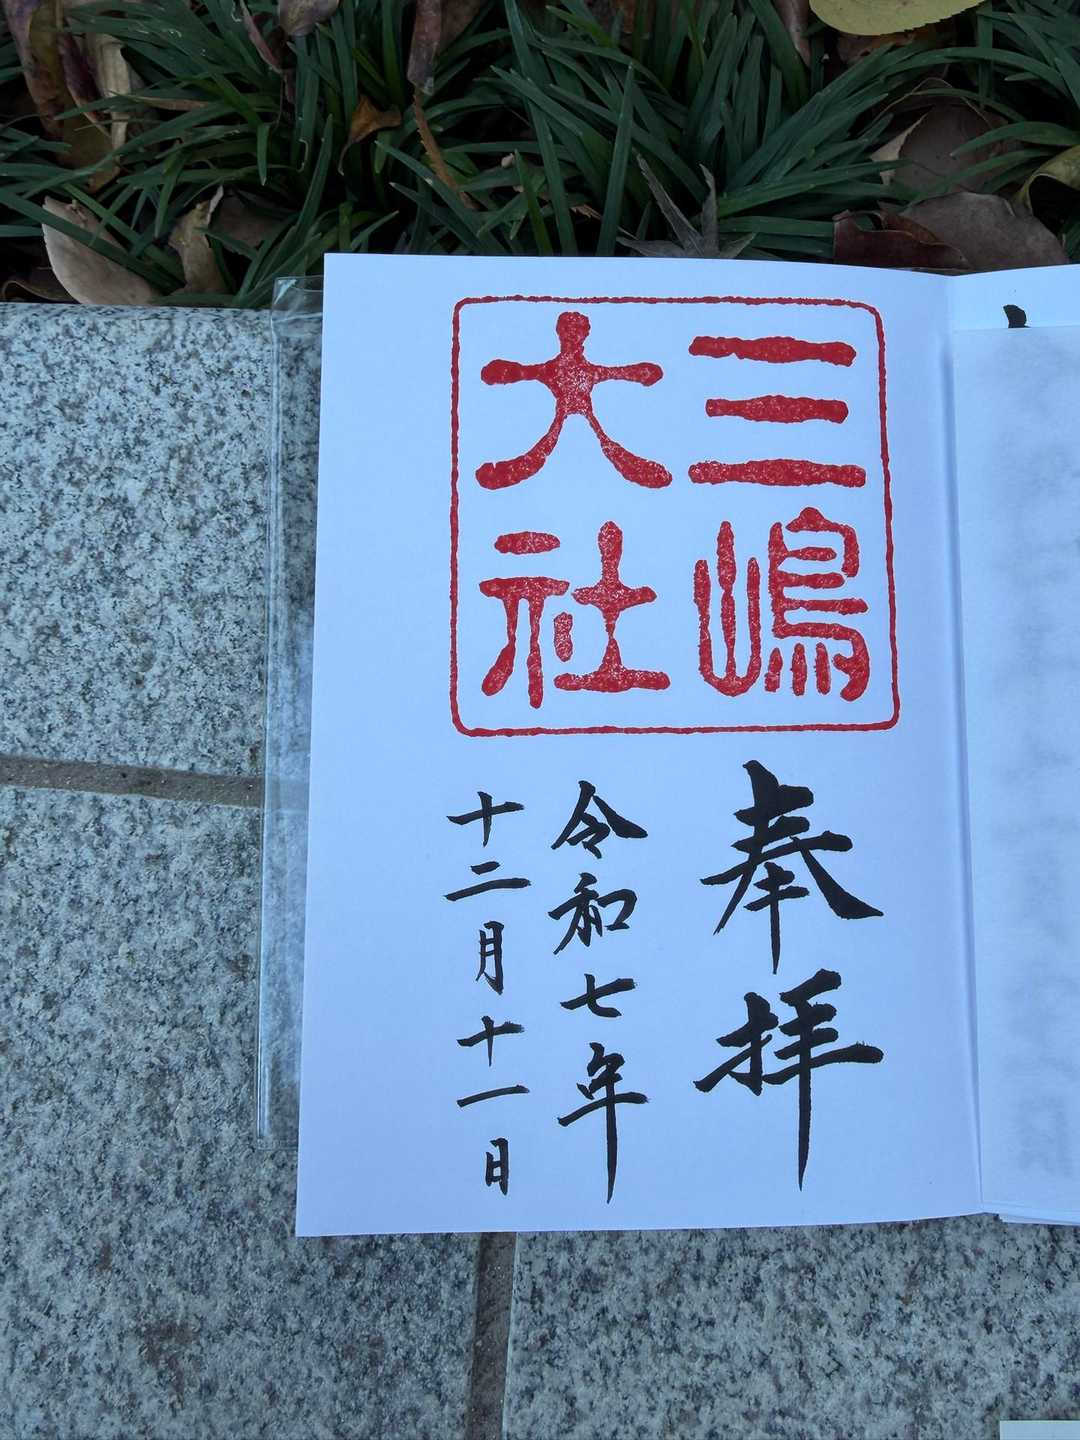 三嶋
大社
奉拝
令和七年
十二月十一日